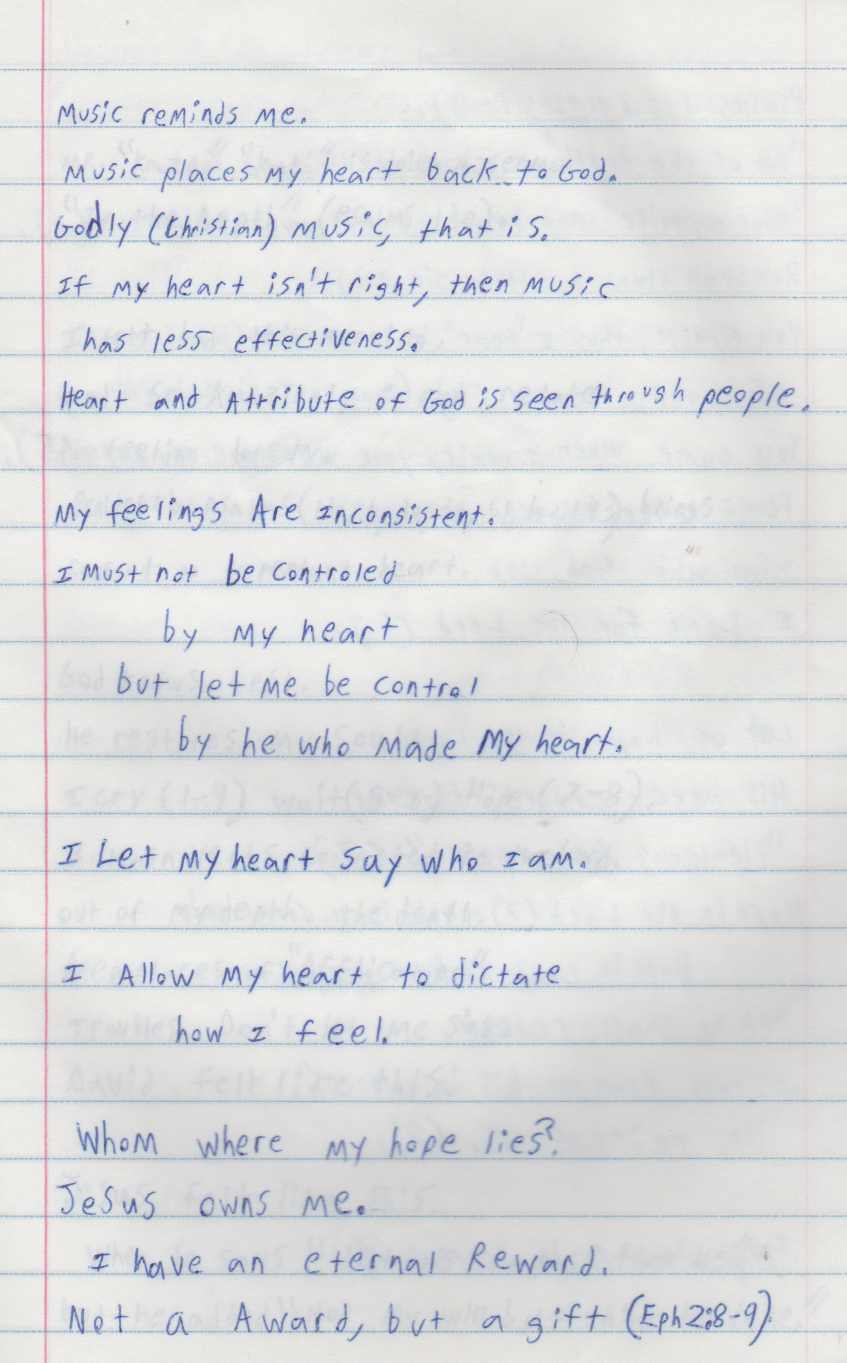 Music reminds me.
Music places my heart back to God.
Godly (Christian) music, that is.
If my heart isn't right, then music
has less effectiveness.
Heart and Attribute of God is seen through people.
My feelings Are Inconsistent.
I must not be controled
by my heart
but let me be control
by he who made my heart.
I Let my heart say who I am.
I Allow my heart to dictate
how I feel.
Whom where my hope lies?
Jesus owns me.
I have an eternal Reward.
Not a Award, but a gift (Eph 2:8-9)